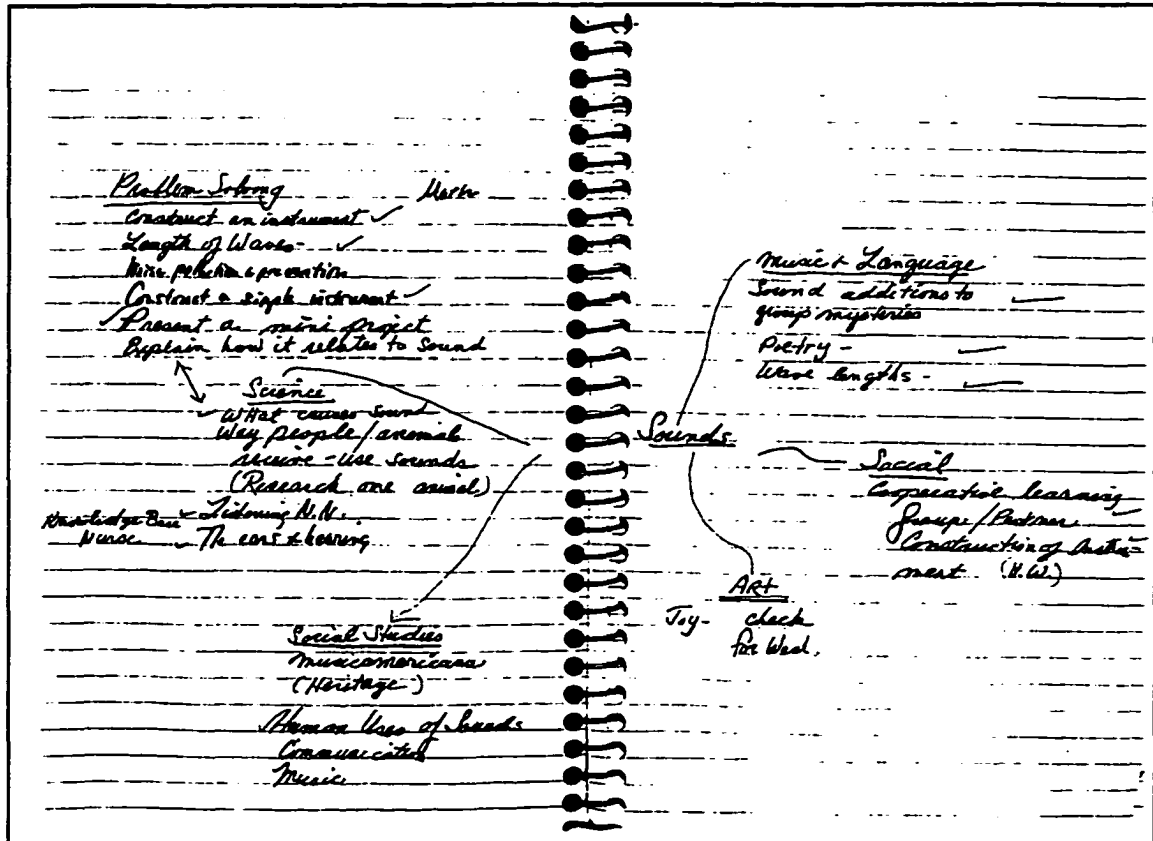 Problem Solving Math
Construct an instrument ✓
Length of Waves - ✓
Noise pollution & prevention
Construct a simple instrument ✓
✓ Present a mini project
Explain how it relates to sound
Science
✓ What causes sound
Way people/animal
receive - use sounds
(Research one animal)
Knowledge Base ✓ Listening N.N.
Nurse ✓ The ears & hearing
Social Studies
musicamericana
(Heritage)
Human Uses of Sounds
Communication
Music
Music & Language
Sound additions to ✓
group mysteries
Poetry - ✓
Wave lengths - ✓
Sounds
Social
Cooperative learning
Groups/Partner ✓
Construction of Instru-
ment (H.W.)
ART
Joy - check
for Wed.